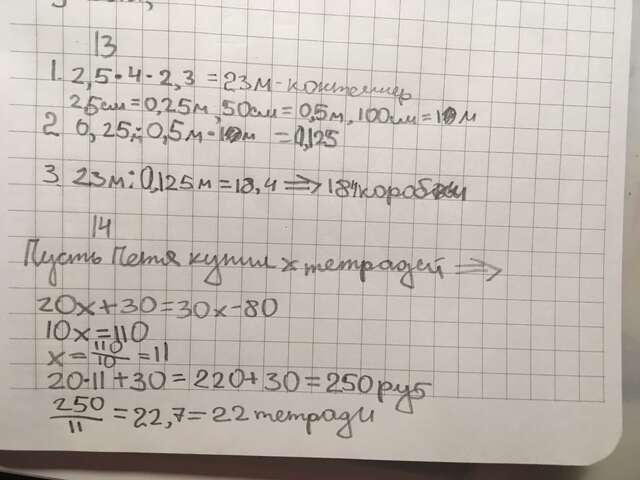 13
1. 2,5·4·2,3 = 23м - контейнер
25см = 0,25м, 50см = 0,5м, 100см = 1м
2 0,25·0,5м·1м = 0,125
3. 23м : 0,125м = 18,4 => 184коробки
14
Пусть Петя купил x тетрадей =>
20x + 30 = 30x - 80
10x = 110
x = 110/10 = 11
20·11 + 30 = 220 + 30 = 250руб
250/11 = 22,7 = 22 тетради